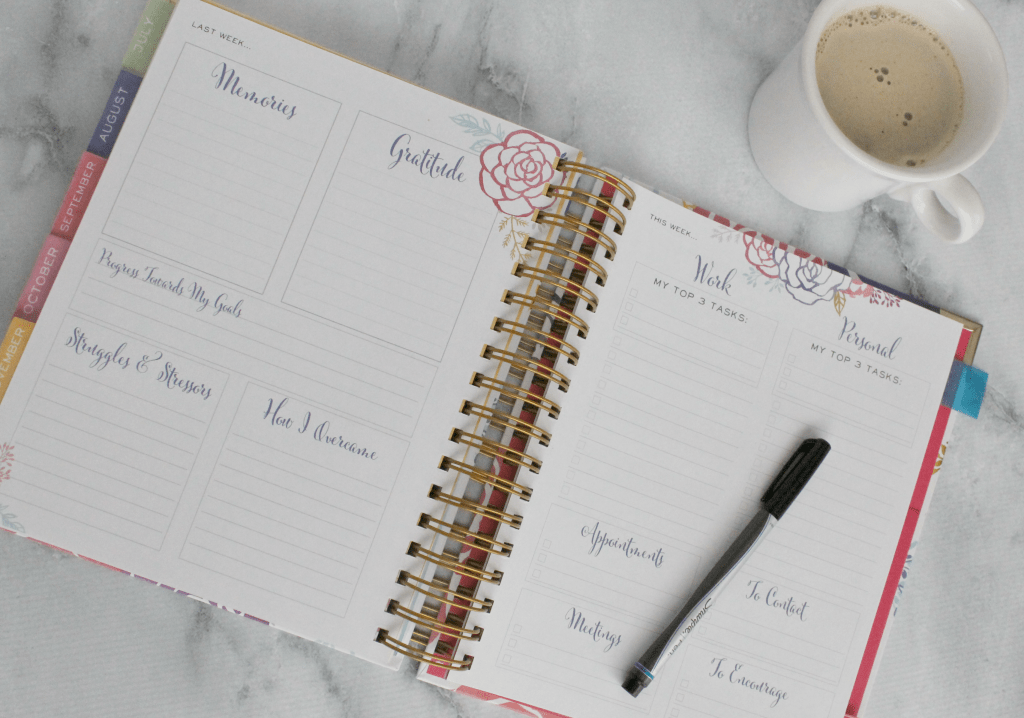 JULY
AUGUST
SEPTEMBER
OCTOBER
LAST WEEK...
Memories
Gratitude
Progress Towards My Goals
Struggles & Stressors
How I Overcame
THIS WEEK...
Work
MY TOP 3 TASKS:
Personal
MY TOP 3 TASKS:
Appointments
Meetings
To Contact
To Encourage
Sharpie